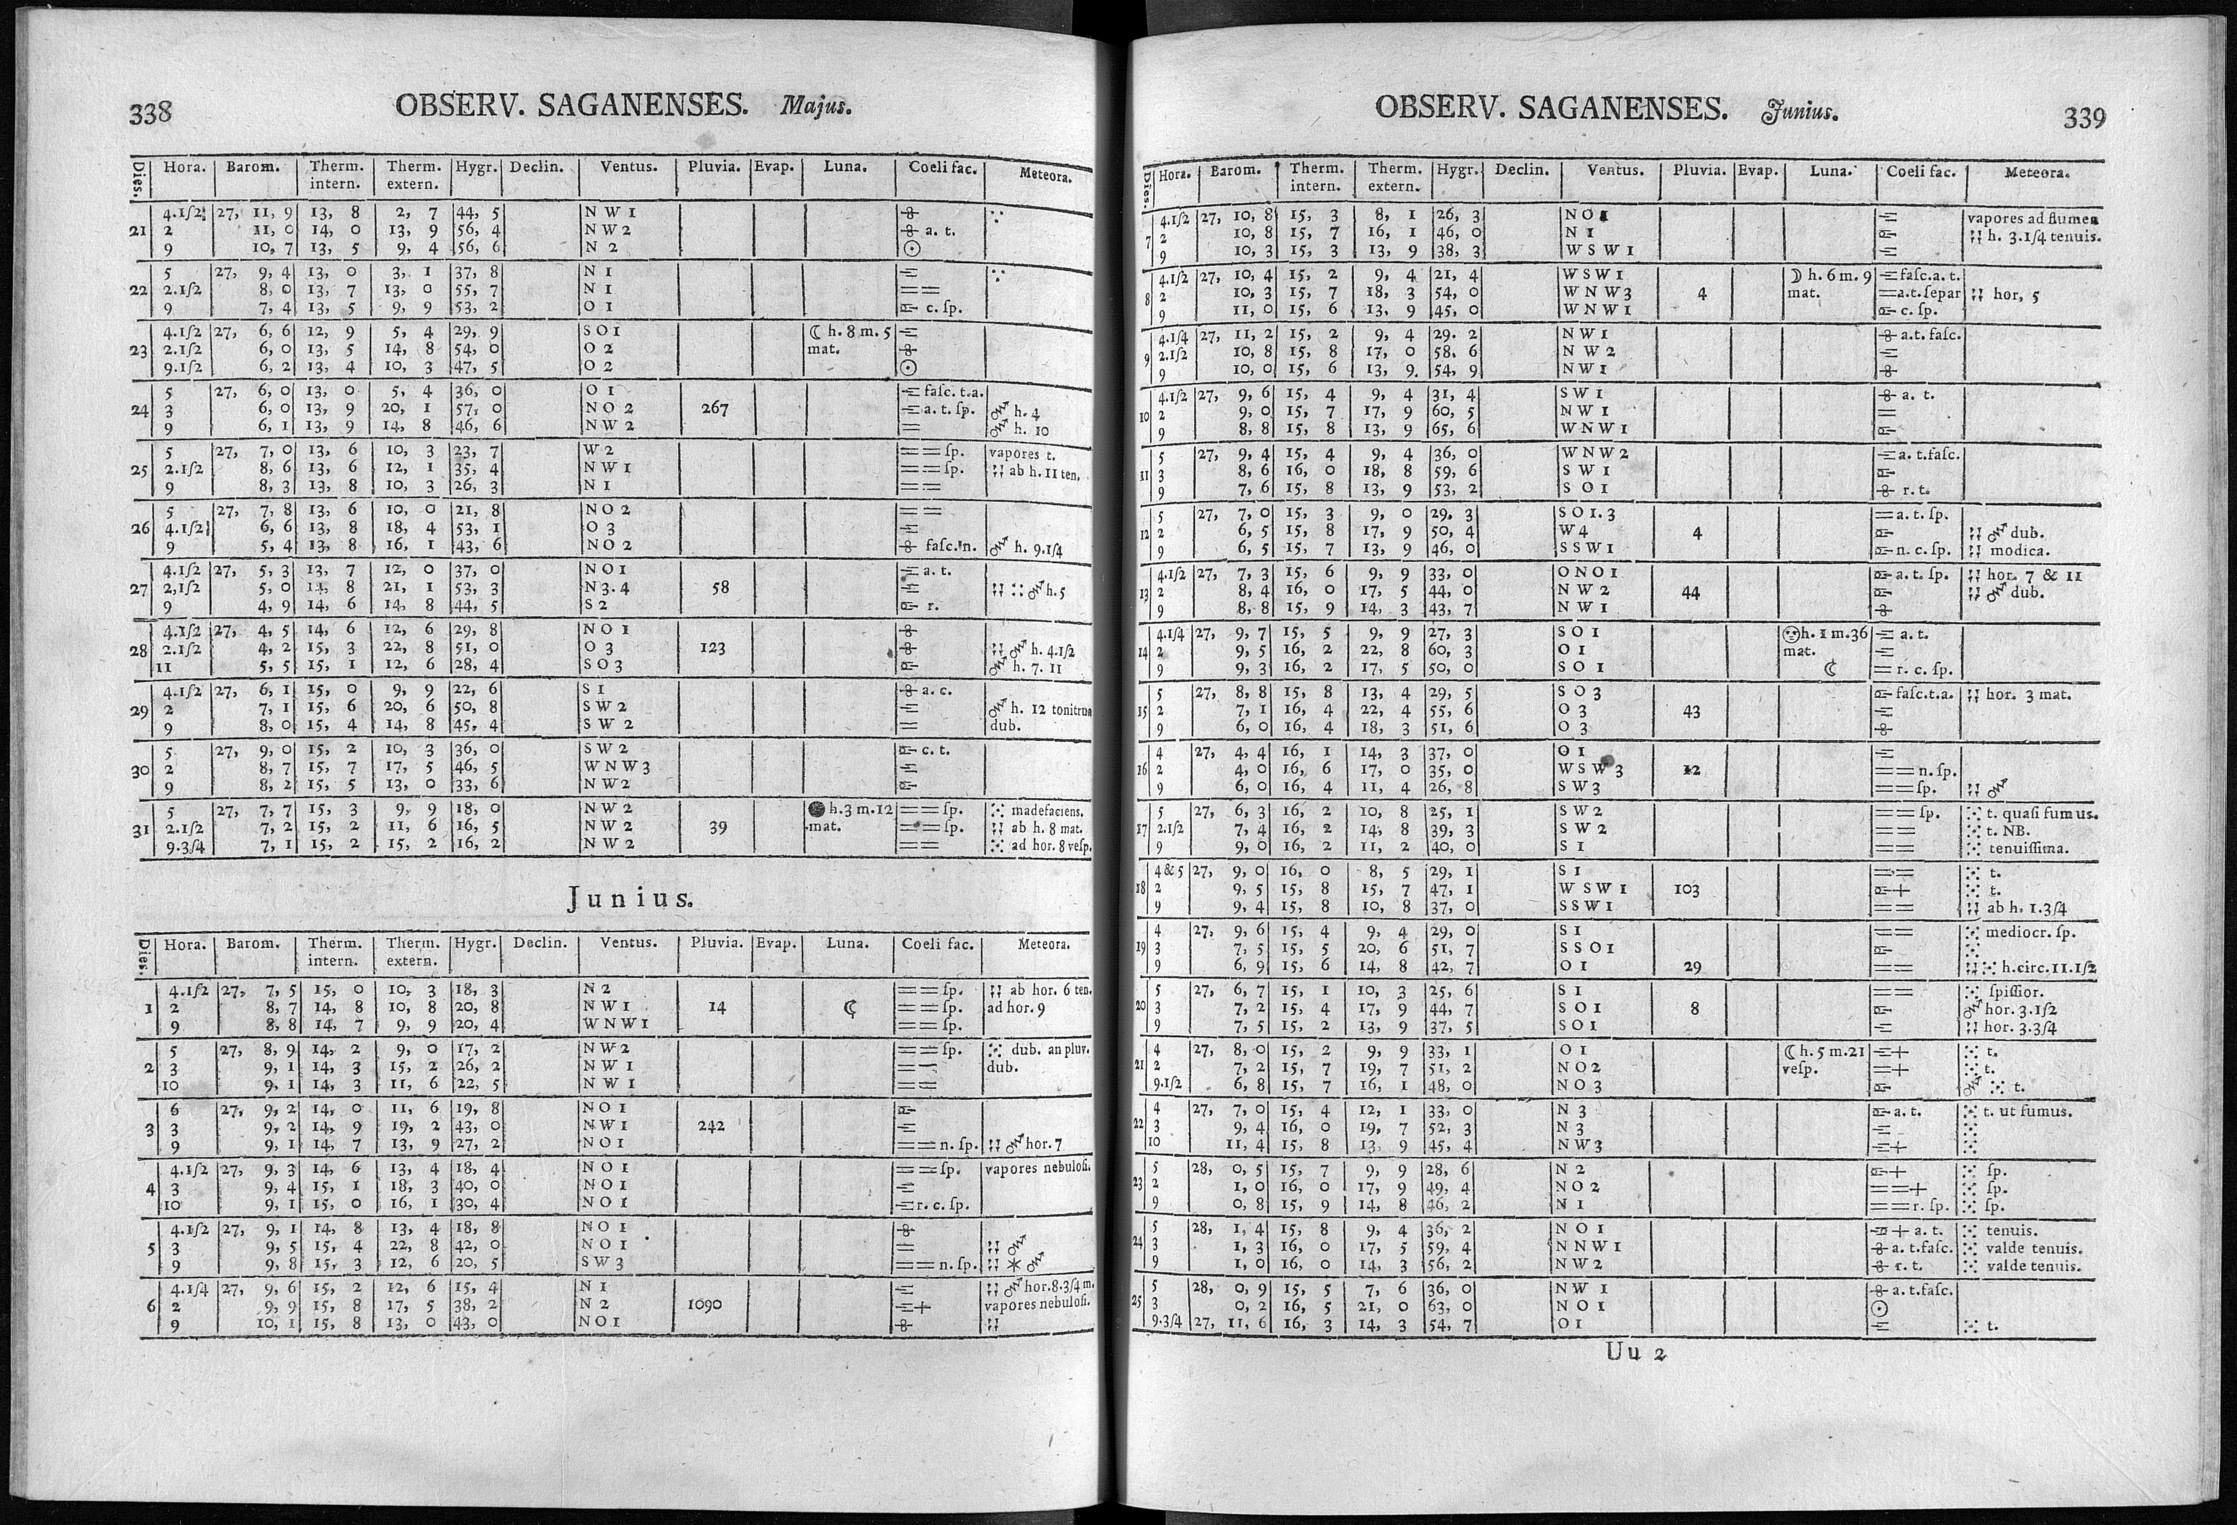 338
OBSERV. SAGANENSES. Majus.
Dies. Hora. Barom. Therm. intern. Therm. extern. Hygr. Declin. Ventus. Pluvia. Evap. Luna. Coeli fac. Meteora.
4.1/2 27, 11, 9 13, 8 2, 7 44, 5 N W 1
21 2 11, 0 14, 0 13, 9 56, 4 N W 2 a. t.
9 10, 7 13, 5 9, 4 56, 6 N 2
5 27, 9, 4 13, 0 3, 1 37, 8 N 1
22 2.1/2 8, 0 13, 7 13, 0 55, 7 N 1
9 7, 4 13, 5 9, 9 53, 2 O 1 c. ſp.
4.1/2 27, 6, 6 12, 9 5, 4 29, 9 S O 1 ☾ h. 8 m. 5
23 2.1/2 6, 0 13, 5 14, 8 54, 0 O 2 mat.
9.1/2 6, 2 13, 4 10, 3 47, 5 O 2
5 27, 6, 0 13, 0 5, 4 36, 0 O 1 faſc. t.a.
24 3 6, 0 13, 9 20, 1 57, 0 N O 2 267 a. t. ſp. h. 4
9 6, 1 13, 9 14, 8 46, 6 N W 2 h. 10
5 27, 7, 0 13, 6 10, 3 23, 7 W 2 == ſp. vapores t.
25 2.1/2 8, 6 13, 6 12, 1 35, 4 N W 1 == ſp. ab h. 11 ten.
9 8, 3 13, 8 10, 3 26, 3 N 1 ==
5 27, 7, 8 13, 6 10, 0 21, 8 N O 2 ==
26 4.1/2 6, 6 13, 8 18, 4 53, 1 O 3
9 5, 4 13, 8 16, 1 43, 6 N O 2 faſc. n. h. 9.1/4
4.1/2 27, 5, 3 13, 7 12, 0 37, 0 N O 1 a. t.
27 2,1/2 5, 0 8 21, 1 53, 3 N 3.4 58 h. 5
9 4, 9 14, 6 14, 8 44, 5 S 2 r.
4.1/2 27, 4, 5 14, 6 12, 6 29, 8 N O 1
28 2.1/2 4, 2 15, 3 22, 8 51, 0 O 3 123 h. 4.1/2
11 5, 5 15, 1 12, 6 28, 4 S O 3 h. 7. 11
4.1/2 27, 6, 1 15, 0 9, 9 22, 6 S 1 a. c.
29 2 7, 1 15, 6 20, 6 50, 8 S W 2 h. 12 tonitrua
9 8, 0 15, 4 14, 8 45, 4 S W 2 dub.
5 27, 9, 0 15, 2 10, 3 36, 0 S W 2 c. t.
30 2 8, 7 15, 7 17, 5 46, 5 W N W 3
9 8, 2 15, 5 13, 0 33, 6 N W 2
5 27, 7, 7 15, 3 9, 9 18, 0 N W 2 ● h. 3 m. 12 == ſp. madefaciens.
31 2.1/2 7, 2 15, 2 11, 6 16, 5 N W 2 39 mat. == ſp. ab h. 8 mat.
9.3/4 7, 1 15, 2 15, 2 16, 2 N W 2 == ad hor. 8 veſp.
Junius.
Dies. Hora. Barom. Therm. intern. Therm. extern. Hygr. Declin. Ventus. Pluvia. Evap. Luna. Coeli fac. Meteora.
4.1/2 27, 7, 5 15, 0 10, 3 18, 3 N 2 == ſp. ab hor. 6 ten.
1 2 8, 7 14, 8 10, 8 20, 8 N W 1 14 == ſp. ad hor. 9
9 8, 8 14, 7 9, 9 20, 4 W N W 1 == ſp.
5 27, 8, 9 14, 2 9, 0 17, 2 N W 2 == ſp. dub. an pluv.
2 3 9, 1 14, 3 15, 2 26, 2 N W 1 == dub.
10 9, 1 14, 3 11, 6 22, 5 N W 1 ==
6 27, 9, 2 14, 0 11, 6 19, 8 N O 1
3 3 9, 2 14, 9 19, 2 43, 0 N W 1 242
9 9, 1 14, 7 13, 9 27, 2 N O 1 == n. ſp. hor. 7
4.1/2 27, 9, 3 14, 6 13, 4 18, 4 N O 1 == ſp. vapores nebuloſi.
4 3 9, 4 15, 1 18, 3 40, 0 N O 1
10 9, 1 15, 0 16, 1 30, 4 N O 1 r. c. ſp.
4.1/2 27, 9, 1 14, 8 13, 4 18, 8 N O 1
5 3 9, 5 15, 4 22, 8 42, 0 N O 1 =
9 9, 8 15, 3 12, 6 20, 5 S W 3 == n. ſp.
4.1/4 27, 9, 6 15, 2 12, 6 15, 4 N 1 hor. 8.3/4 m.
6 2 9, 9 15, 8 17, 5 38, 2 N 2 1090 + vapores nebuloſi.
9 10, 1 15, 8 13, 0 43, 0 N O 1
OBSERV. SAGANENSES. Junius.
339
Dies. Hora. Barom. Therm. intern. Therm. extern. Hygr. Declin. Ventus. Pluvia. Evap. Luna. Coeli fac. Meteora.
4.1/2 27, 10, 8 15, 3 8, 1 26, 3 N O 1 vapores ad flumen
7 2 10, 8 15, 7 16, 1 46, 0 N 1 h. 3.1/4 tenuis.
9 10, 3 15, 3 13, 9 38, 3 W S W 1
4.1/2 27, 10, 4 15, 2 9, 4 21, 4 W S W 1 ☽ h. 6 m. 9 faſc. a. t.
8 2 10, 3 15, 7 18, 3 54, 0 W N W 3 4 mat. = a.t. ſepar hor, 5
9 11, 0 15, 6 13, 9 45, 0 W N W 1 c. ſp.
4.1/4 27, 11, 2 15, 2 9, 4 29. 2 N W 1 a.t. faſc.
9 2.1/2 10, 8 15, 8 17, 0 58. 6 N W 2
9 10, 0 15, 6 13, 9. 54, 9 N W 1
4.1/2 27, 9, 6 15, 4 9, 4 31, 4 S W 1 a. t.
10 2 9, 0 15, 7 17, 9 60, 5 N W 1 =
9 8, 8 15, 8 13, 9 65, 6 W N W 1
5 27, 9, 4 15, 4 9, 4 36, 0 W N W 2 a. t. faſc.
11 3 8, 6 16, 0 18, 8 59, 6 S W 1
9 7, 6 15, 8 13, 9 53, 2 S O 1 r. t.
5 27, 7, 0 15, 3 9, 0 29. 3 S O 1. 3 = a. t. ſp.
12 2 6, 5 15, 8 17, 9 50, 4 W 4 4 dub.
9 6, 5 15, 7 13, 9 46, 0 S S W 1 n. c. ſp. modica.
4.1/2 27, 7, 3 15, 6 9, 9 33, 0 O N O 1 a. t. ſp. hor. 7 & 11
13 2 8, 4 16, 0 17, 5 44, 0 N W 2 44 dub.
9 8, 8 15, 9 14, 3 43, 7 N W 1
4.1/4 27, 9, 7 15, 5 9, 9 27, 3 S O 1 h. 1 m. 36 a. t.
14 2 9, 5 16, 2 22, 8 60, 3 O 1 mat.
9 9, 3 16, 2 17, 5 50, 0 S O 1 = r. c. ſp.
5 27, 8, 8 15, 8 13, 4 29, 5 S O 3 faſc. t.a. hor. 3 mat.
15 2 7, 1 16, 4 22, 4 55, 6 O 3 43
9 6, 0 16, 4 18, 3 51, 6 O 3
4 27, 4, 4 16, 1 14, 3 37, 0 O 1
16 2 4, 0 16, 6 17, 0 35, 0 W S W 3 12 == n. ſp.
9 6, 0 16, 4 11, 4 26, 8 S W 3 == ſp.
5 27, 6, 3 16, 2 10, 8 25, 1 S W 2 == ſp. t. quaſi fumus.
17 2.1/2 7, 4 16, 2 14, 8 39, 3 S W 2 == t. NB.
9 9, 0 16, 2 11, 2 40, 0 S 1 == tenuiſſima.
4 & 5 27, 9, 0 16, 0 8, 5 29, 1 S 1 == t.
18 2 9, 5 15, 8 15, 7 47, 1 W S W 1 103 + t.
9 9, 4 15, 8 10, 8 37, 0 S S W 1 == ab h. 1.3/4
4 27, 9, 6 15, 4 9, 4 29, 0 S 1 == mediocr. ſp.
19 3 7, 5 15, 5 20, 6 51, 7 S S O 1
9 6, 9 15, 6 14, 8 42, 7 O 1 29 == h. circ. 11.1/2
5 27, 6, 7 15, 1 10, 3 25, 6 S 1 == ſpiſſior.
20 3 7, 2 15, 4 17, 9 44, 7 S O 1 8 hor. 3.1/2
9 7, 5 15, 2 13, 9 37, 5 S O 1 hor. 3.3/4
4 27, 8, 0 15, 2 9, 9 33, 1 O 1 ☾ h. 5 m. 21 + t.
21 2 7, 2 15, 7 19, 7 51, 2 N O 2 veſp. + t.
9.1/2 6, 8 15, 7 16, 1 48, 0 N O 3 t.
4 27, 7, 0 15, 4 12, 1 33, 0 N 3 a. t. t. ut fumus.
22 3 9, 4 16, 0 19, 7 52, 3 N 3
10 11, 4 15, 8 13, 9 45, 4 N W 3 +
5 28, 0, 5 15, 7 9, 9 28, 6 N 2 + ſp.
23 2 1, 0 16, 0 17, 9 49, 4 N O 2 ==+ ſp.
9 0, 8 15, 9 14, 8 46, 2 N 1 == r. ſp. ſp.
5 28, 1, 4 15, 8 9, 4 36, 2 N O 1 + a. t. tenuis.
24 3 1, 3 16, 0 17, 5 59, 4 N N W 1 a. t. faſc. valde tenuis.
9 1, 0 16, 0 14, 3 56, 2 N W 2 r. t. valde tenuis.
5 28, 0, 9 15, 5 7, 6 36, 0 N W 1 a. t. faſc.
25 3 0, 2 16, 5 21, 0 63, 0 N O 1
9.3/4 27, 11, 6 16, 3 14, 3 54, 7 O 1 t.
Uu 2